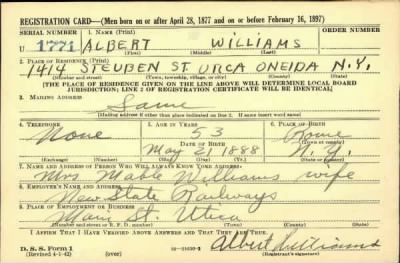 REGISTRATION CARD—(Men born on or after April 28, 1877 and on or before February 16, 1897)
SERIAL NUMBER 1. NAME (Print)
U 1771 ALBERT WILLIAMS
(First) (Middle) (Last)
2. PLACE OF RESIDENCE (Print)
1414 STEUBEN ST. UTICA ONEIDA N.Y.
(Number and street) (Town, township, village, or city) (County) (State)
[THE PLACE OF RESIDENCE GIVEN ON THE LINE ABOVE WILL DETERMINE LOCAL BOARD
JURISDICTION; LINE 2 OF REGISTRATION CERTIFICATE WILL BE IDENTICAL]
3. MAILING ADDRESS
Same
[Mailing address if other than place indicated on line 2. If same insert word same]
4. TELEPHONE 5. AGE IN YEARS 6. PLACE OF BIRTH
None 53 Rome
DATE OF BIRTH (Town or county)
May 21 1888 N.Y.
(Mo.) (Day) (Yr.) (State or country)
7. NAME AND ADDRESS OF PERSON WHO WILL ALWAYS KNOW YOUR ADDRESS
Mrs Mable Williams wife
8. EMPLOYER'S NAME AND ADDRESS
New State Railways
9. PLACE OF EMPLOYMENT OR BUSINESS
Main St. Utica
(Number and street or R. F. D. number) (Town) (County) (State)
I AFFIRM THAT I HAVE VERIFIED ABOVE ANSWERS AND THAT THEY ARE TRUE.
Albert Williams
D. S. S. Form 1
(Revised 4-1-42) (over) (Registrant's signature)